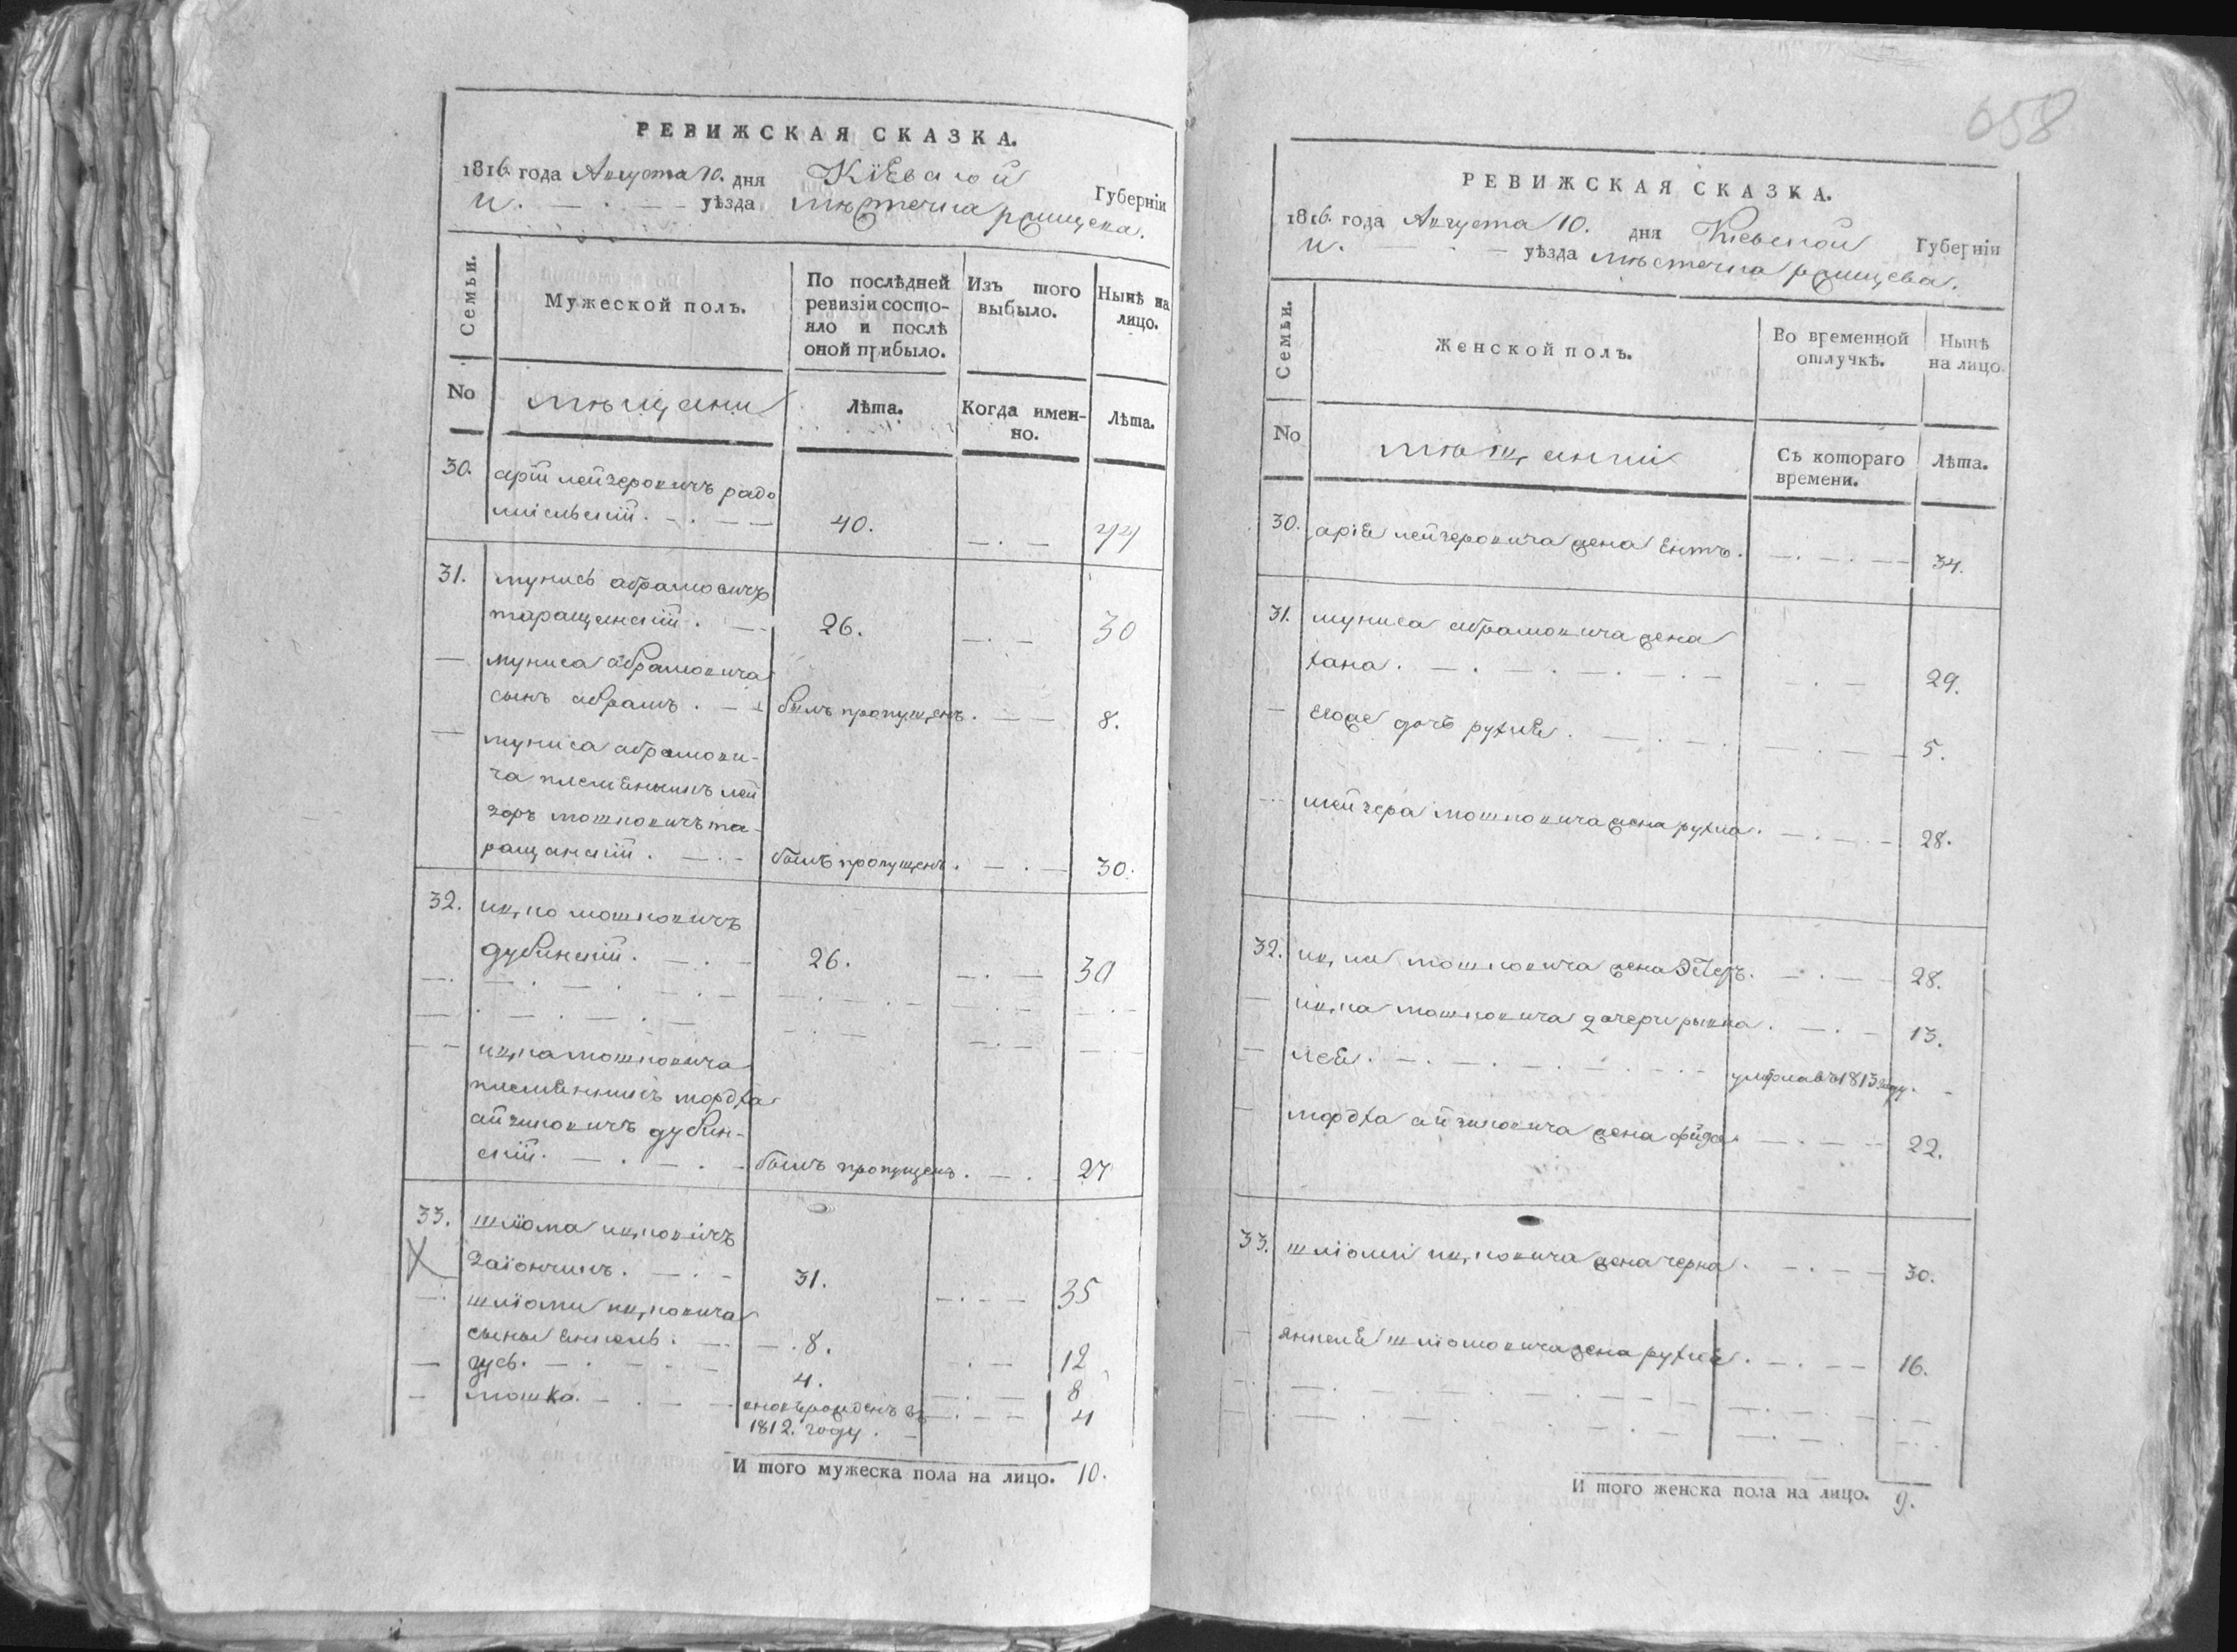 РЕВИЖСКАЯ СКАЗКА.
1816. года Августа 10. дня Кіевской Губерніи
и. — . — — уѣзда мѣстечка
Семьи.
Мужеской полъ.
По послѣдней ревизіи состо-
яло и послѣ
оной прибыло.
Изъ того
выбыло.
Нынѣ на
лицо.
No
мѣщани
Лѣта.
Когда имен-
но.
Лѣта.
30. арій лейзеровичъ радо
мисльскій. — . — — 40. — . — 44
31. мунись абрамовичъ
таращанскій. — 26. — . — 30
— муниса абрамовича
сынъ абрамъ. — былъ пропущенъ. — — 8.
— муниса абрамови-
ча племѣнникъ лей
зоръ мошковичъ та-
ращанскій. — . — былъ пропущенъ. — . — 30.
32. ицко мошковичъ
дубинскій. — . — 26. — . — 30
— — ицка мошковича
племѣнникъ мордха
айзиковичъ дубин-
скій. — . — . — былъ пропущенъ. — . 27
33. шліома ицковичъ
заіончикъ. — . — 31. — . — — 35
— . шліоми ицковича
сыны енкель. — — . 8. . — 12
— зусь. — . — . — 4. — . — 8
— мошка. — . — — новорожденъ въ — . — — 4
1812. году. —
И того мужеска пола на лицо. 10.
658
РЕВИЖСКАЯ СКАЗКА.
1816. года Августа 10. дня Кіевской Губерніи
и. — . — уѣзда мѣстечка
Семьи.
Женской полъ.
Во временной
отлучкѣ.
Нынѣ
на лицо.
No
мѣщанки
Съ котораго
времени.
Лѣта.
30. арія лейзеровича жена Ента. — . — . — — 34.
31. муниса абрамовича жена
хана. — . — . — . — . — . — 29.
— его дочь рухля. — . — . — . — — 5.
— лейзера мошковича жена рухла. — . — . — 28.
32. ицки мошковича жена Эстеръ. — . — — 28.
— ицка мошковича дочери рывка. — . — 13.
— лея. — . — . — . — . — умерла въ 1813 году. —
— мордха айзиковича жена фейга. — . — — 22.
33. шліоми ицковича жена черна. — . — — 30.
— янкеля шліомовича жена рухля. — . — — 16.
И того женска пола на лицо. 9.